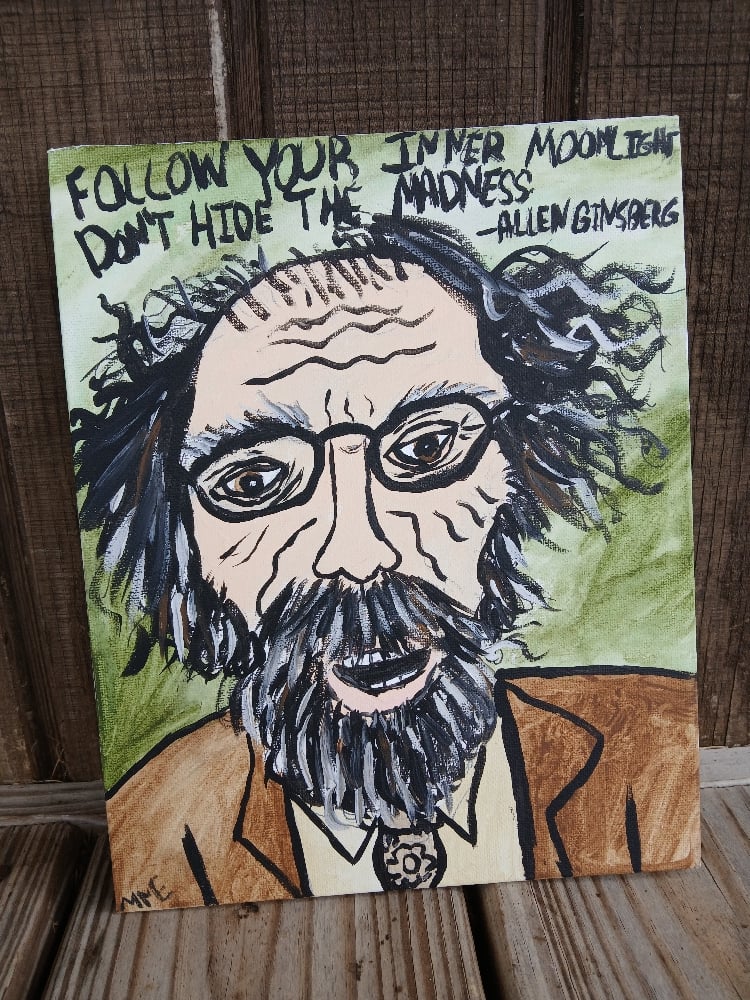 FOLLOW YOUR INNER MOONLIGHT
DON'T HIDE THE MADNESS
-ALLEN GINSBERG
MMC